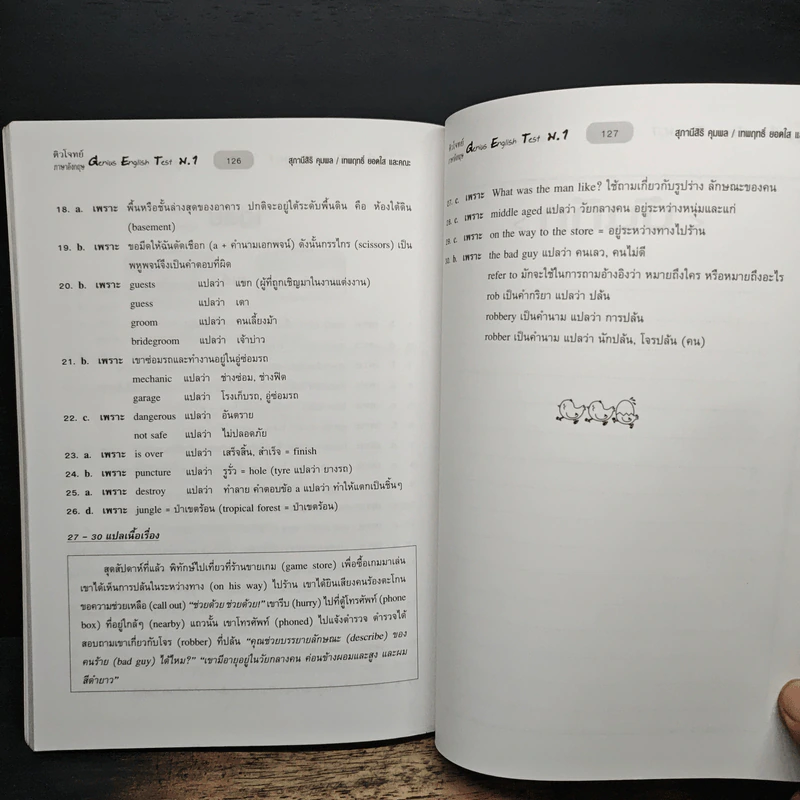 ติวโจทย์
ภาษาอังกฤษ Genius English Test ม.1 126 สุภานีสิริ คุมพล / เทพฤทธิ์ ยอดใส และคณะ
18. a. เพราะ พื้นหรือชั้นล่างสุดของอาคาร ปกติจะอยู่ใต้ระดับพื้นดิน คือ ห้องใต้ดิน
(basement)
19. b. เพราะ ขอมีดให้ฉันตัดเชือก (a + คำนามเอกพจน์) ดังนั้นกรรไกร (scissors) เป็น
พหูพจน์จึงเป็นคำตอบที่ผิด
20. b. เพราะ guests แปลว่า แขก (ผู้ที่ถูกเชิญมาในงานแต่งงาน)
guess แปลว่า เดา
groom แปลว่า คนเลี้ยงม้า
bridegroom แปลว่า เจ้าบ่าว
21. b. เพราะ เขาซ่อมรถและทำงานอยู่ในอู่ซ่อมรถ
mechanic แปลว่า ช่างซ่อม, ช่างฟิต
garage แปลว่า โรงเก็บรถ, อู่ซ่อมรถ
22. c. เพราะ dangerous แปลว่า อันตราย
not safe แปลว่า ไม่ปลอดภัย
23. a. เพราะ is over แปลว่า เสร็จสิ้น, สำเร็จ = finish
24. b. เพราะ puncture แปลว่า รูรั่ว = hole (tyre แปลว่า ยางรถ)
25. a. เพราะ destroy แปลว่า ทำลาย คำตอบข้อ a แปลว่า ทำให้แตกเป็นชิ้นๆ
26. d. เพราะ jungle = ป่าเขตร้อน (tropical forest = ป่าเขตร้อน)
27 – 30 แปลเนื้อเรื่อง
สุดสัปดาห์ที่แล้ว พิทักษ์ไปเที่ยวที่ร้านขายเกม (game store) เพื่อซื้อเกมมาเล่น
เขาได้เห็นการปล้นในระหว่างทาง (on his way) ไปร้าน เขาได้ยินเสียงคนร้องตะโกน
ขอความช่วยเหลือ (call out) "ช่วยด้วย ช่วยด้วย!" เขารีบ (hurry) ไปที่ตู้โทรศัพท์ (phone
box) ที่อยู่ใกล้ๆ (nearby) แถวนั้น เขาโทรศัพท์ (phoned) ไปแจ้งตำรวจ ตำรวจได้
สอบถามเขาเกี่ยวกับโจร (robber) ที่ปล้น "คุณช่วยบรรยายลักษณะ (describe) ของ
คนร้าย (bad guy) ได้ไหม?" "เขามีอายุอยู่ในวัยกลางคน ค่อนข้างผอมและสูง และผม
สีดำยาว"
ติวโจทย์
ภาษาอังกฤษ Genius English Test ม.1 127 สุภานีสิริ คุมพล / เทพฤทธิ์ ยอดใส
27. c. เพราะ What was the man like? ใช้ถามเกี่ยวกับรูปร่าง ลักษณะของคน
28. c. เพราะ middle aged แปลว่า วัยกลางคน อยู่ระหว่างหนุ่มและแก่
29. c. เพราะ on the way to the store = อยู่ระหว่างทางไปร้าน
30. b. เพราะ the bad guy แปลว่า คนเลว, คนไม่ดี
refer to มักจะใช้ในการถามอ้างอิงว่า หมายถึงใคร หรือหมายถึงอะไร
rob เป็นคำกริยา แปลว่า ปล้น
robbery เป็นคำนาม แปลว่า การปล้น
robber เป็นคำนาม แปลว่า นักปล้น, โจรปล้น (คน)